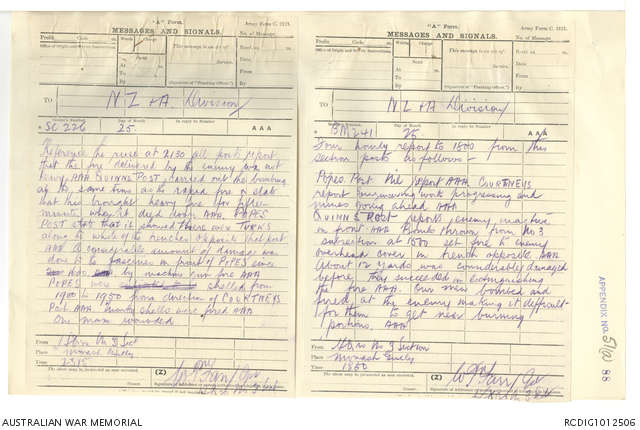 "A" Form.
Army Form C. 2121.
MESSAGES AND SIGNALS.
No. of Message
Prefix Code m.
Words Charge
Office of Origin and Service Instructions.
This message is on a/c of:
Recd. at m.
Sent
Date
At m.
Service.
From
To
By
(Signature of "Franking Officer.")
By
TO NZ & A. Division
Sender's Number Day of Month In reply to Number AAA
SC 226 25.
Reference the ruse at 2130 all posts report
that the fire delivered by the enemy was not
heavy AAA QUINNS POST carried out the bombing
at the same time as the rapid fire & state
that this brought heavy fire for fifteen
minutes when it died down AAA POPES
POST state that it showed there were TURKS
along the whole of the trenches opposite that post
AAA A considerable amount of damage was
done to in front of POPES
by machine gun fire AAA
POPES were shelled from
1900 to 1950 from direction of COURTNEYS
Post AAA Twenty shells were fired AAA
One man wounded
From Hdqrs No 3 Sect
Place Monash Valley
Time 2315
The above may be forwarded as now corrected. (Z)
"A" Form.
Army Form C. 2121.
MESSAGES AND SIGNALS.
No. of Message
Prefix Code m.
Words Charge
Office of Origin and Service Instructions.
This message is on a/c of:
Recd. at m.
Sent
Date
At m.
Service.
From
To
By
(Signature of "Franking Officer.")
By
TO NZ & A Division
Sender's Number Day of Month In reply to Number AAA
BM 241 25.
Four hourly report to 1800 from this
section posts as follows -
Popes Post Nil report AAA COURTNEYS
report mining work progressing and
mines going ahead AAA
QUINNS POST reports enemy inactive
in front AAA Bombs thrown from No 3
subsection at 1500 set fire to enemy
overhead cover in trench opposite AAA
About 12 yards was considerably damaged
before they succeeded in extinguishing
the fire AAA Our men bombed and
fired at the enemy making it difficult
for them to get near burning
portions. AAA
From Hdqrs No 3 Section
Place Monash Gully
Time 1850
The above may be forwarded as now corrected. (Z)
APPENDIX NO. 51(a) 88
AUSTRALIAN WAR MEMORIAL
RCDIG1012506